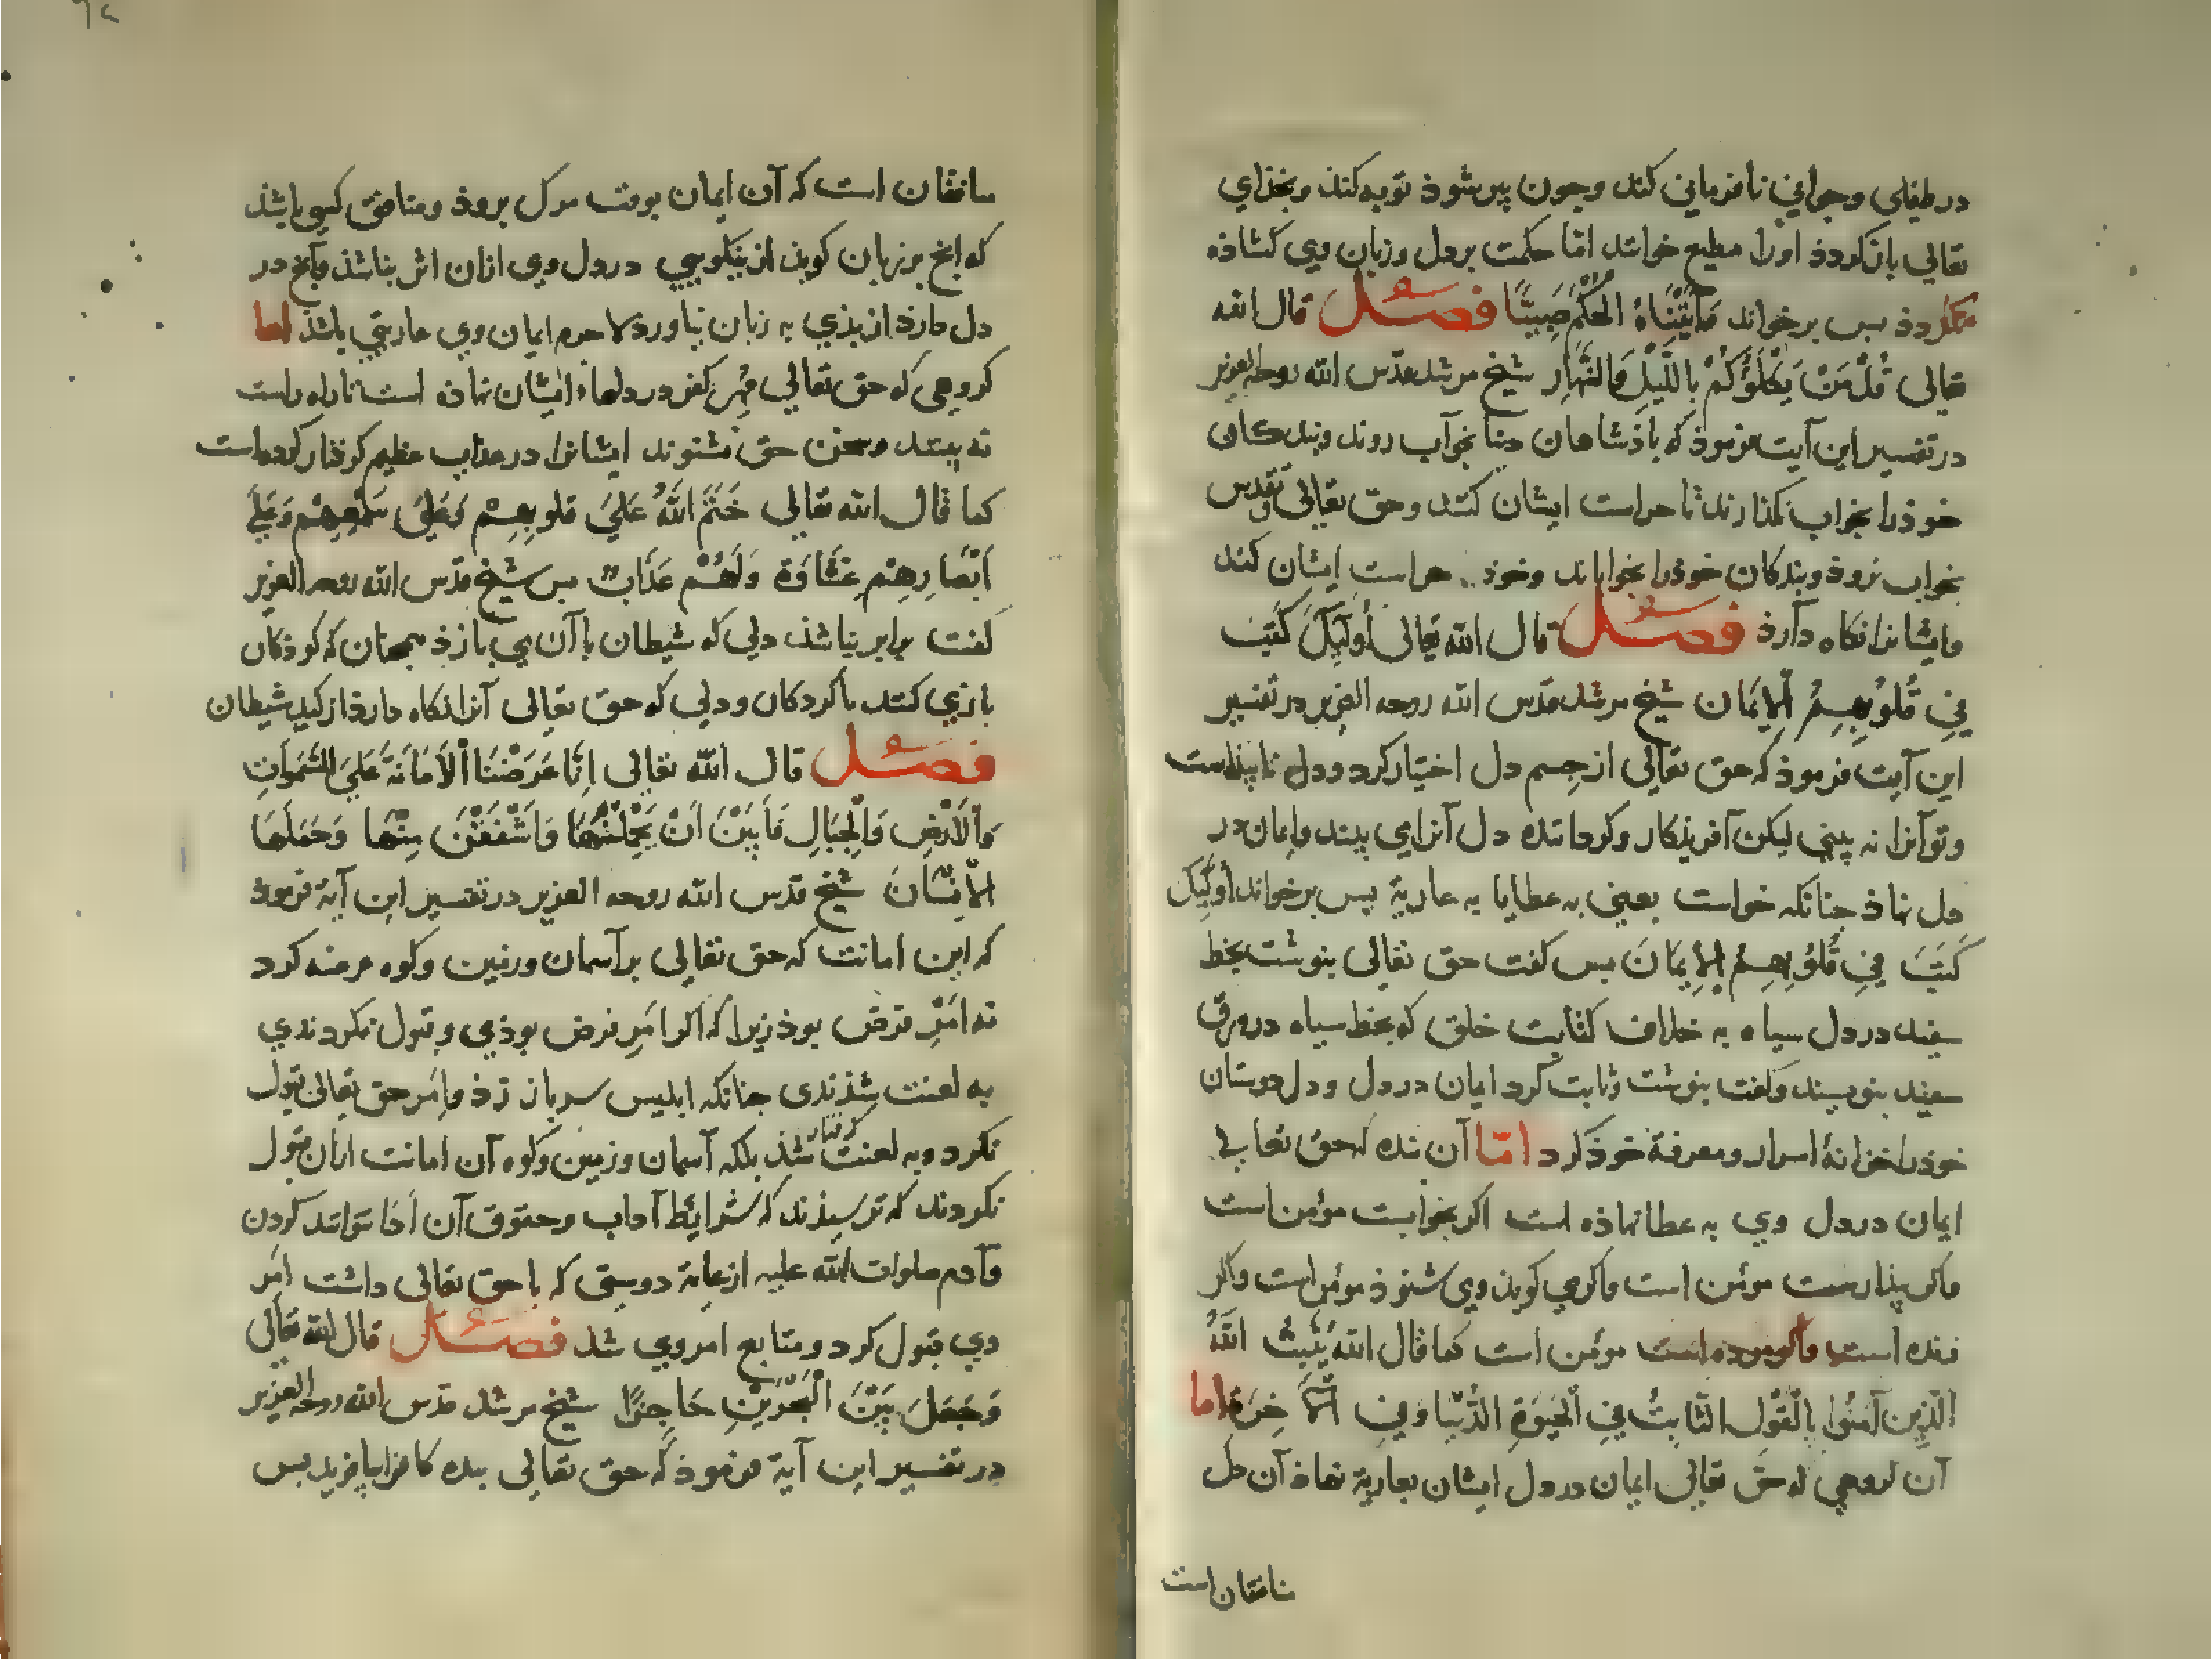 در طفلی وجوانی نافرمانی کند وجون پیر شوذ توبه کند وبخذای
تعالی بازکردذ اورا مطیع خوانند امّا حکمت بر دل وزبان وی کشاذه
نکردذ بس برخواند وَآتَیْنَاهُ الْحُکْمَ صَبِیًّا فصل قال الله
تعالی قُلْ مَنْ یَکْلَؤُکُمْ بِاللَّیْلِ وَالنَّهَارِ شیخ مرشد قدّس الله روحه العزیز
در تفسیر این آیت فرموذ که باذشاهان دنیا بخوآب روند وبندکان
خوذرا بخواب نکذارند تا حراست ایشان کنند وحق تعالی وتقدس
بخواب نروذ وبندکان خوذرا بخواباند وخوذ حراست ایشان کند
وایشانرا نکاه دآرذ فصل قال الله تعالی أُولَئِكَ کَتَبَ
فِي قُلُوبِهِمُ الْإِیمَان شیخ مرشد قدّس الله روحه العزیز در تفسیر
این آیت فرموذ که حق تعالی از جسم دل اختیار کرد ودل ناپیذاست
وتو آنرا نه بینی لیکن آفریذکار وکرداننده دل آنرا می بیند وایمان در
دل نهاذ جنانکه خواست یعنی به عطا یا به عاریة بس برخواند أولئك
کَتَبَ فِي قُلُوبِهِمُ الْإِیمَانَ بس کفت حق تعالی بنوشت بخط
سفید در دل سیاه به خلاف کتابت خلق که بخط سیاه در ورق
سفید بنویسند وکفت بنوشت وثابت کرد ایمان در دل ودل دوستان
خوذرا خزانهٔ اسرار ومعرفة خوذ کرد امّا آن بنده که حق تعالی
ایمان در دل وی به عطا نهاذه است اکر بخوابست مؤمن است
واکر بیذارست مؤمن است واکر می کویذ ومی شنوذ مؤمن است واکر
زنده است واکر مرده است مؤمن است کما قال الله یُثَبِّتُ اللَّهُ
الَّذِینَ آمَنُوا بِالْقَوْلِ الثَّابِتِ فِي الْحَیَوةِ الدُّنْیَا وَفِي الْآخِرَةِ اما
آن کروهی که حق تعالی ایمان در دل ایشان بعاریة نهاذ آن دل
منافقان است
منافقان است که آن ایمان بوقت مرک بروذ ومنافق کسی باشذ
که انج بر زبان کویذ از نیکویی در دل وی ازان اثر نباشذ وآنج در
دل دارذ از بذی به زبان نیاورد لا جرم ایمان وی عاریتی باشذ اما
کروهی که حق تعالی مُهر کفر در دلهاء ایشان نهاذه است تا راه راست
نه بینند وسخن حق نشنوند ایشانرا در عذاب عظیم کرفتار کرده است
کما قال الله تعالی خَتَمَ اللَّهُ عَلَی قلوبِهِمْ وَعَلَی سَمْعِهِمْ وَعَلَی
أَبْصَارِهِمْ غِشَاوَة وَلَهُمْ عَذَابٌ بس شیخ قدّس الله روحه العزیز
کفت برابر نباشذ دلی که شیطان با آن می بازذ همجنان که کوذکان
بازی کنند با کردکان ودلی که حق تعالی آنرا نکاه دارذ از کید شیطان
فصل قال الله تعالی إِنَّا عَرَضْنَا الْأَمَانَةَ عَلَی السَّمَوَاتِ
وَالْأَرْضِ وَالْجِبَالِ فَأَبَیْنَ أَنْ یَحْمِلْنَهَا وَأَشْفَقْنَ مِنْهَا وَحَمَلَهَا
الْإِنْسَانُ شیخ قدس الله روحه العزیز در تفسیر این آیة فرموذ
که این امانت که حق تعالی بر آسمان وزمین وکوه عرضه کرد
نه امْرِ فرض بوذ زیرا که اکر امرِ فرض بوذی وقبول نکردندی
به لعنت شذندی جنانکه ابلیس سر باز زذ وامر حق تعالی قبول
نکرد وبه لعنت کرفتار شذ بلکه آسمان وزمین وکوه آن امانت ازان قبول
نکردند که ترسیذند که شرایط آداب وحقوق آن ادا نتوانند کردن
وآدم صلوات الله علیه از غایة دوستی که با حق تعالی داشت امر
وی قبول کرد ومتابع امر وی شذ فصل قال الله تعالی
وَجَعَلَ بَیْنَ الْبَحْرَیْنِ حَاجِزًا شیخ مرشد قدّس الله روحه العزیز
در تفسیر این آیة فرموذ که حق تعالی بنده کافرا بیافرید بس